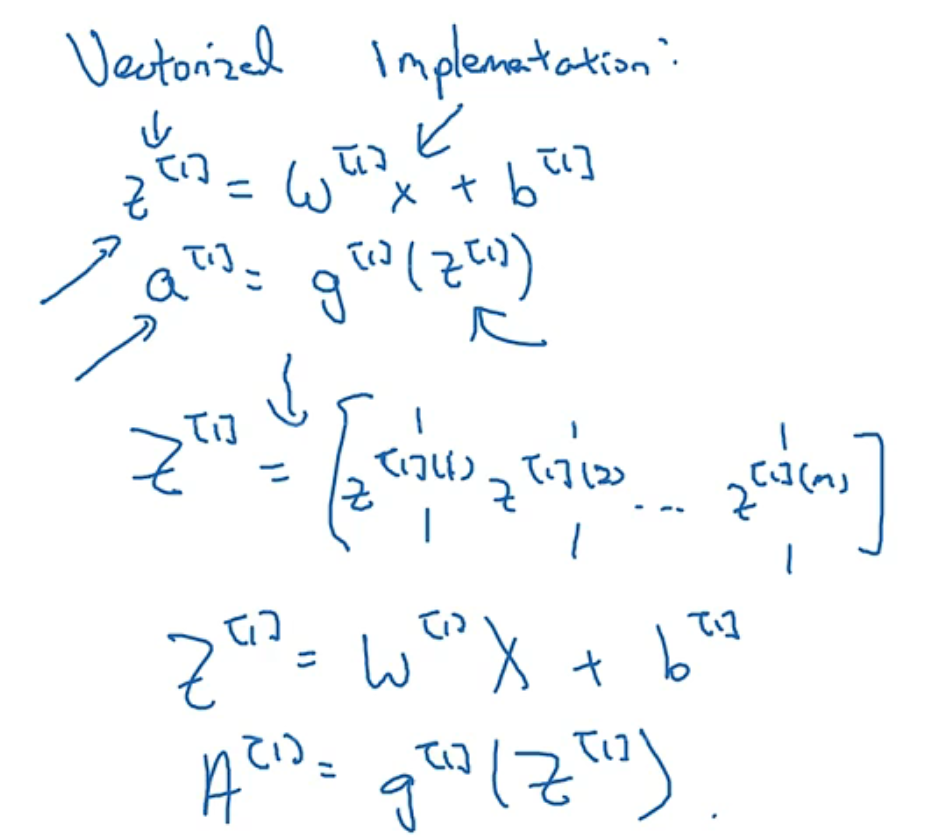 Vectorized Implemetation:
z^[1] = W^[1] x + b^[1]
a^[1] = g^[1](z^[1])
Z^[1] = [z^[1](1) z^[1](2) ... z^[1](m)]
Z^[1] = W^[1] X + b^[1]
A^[1] = g^[1](Z^[1]).